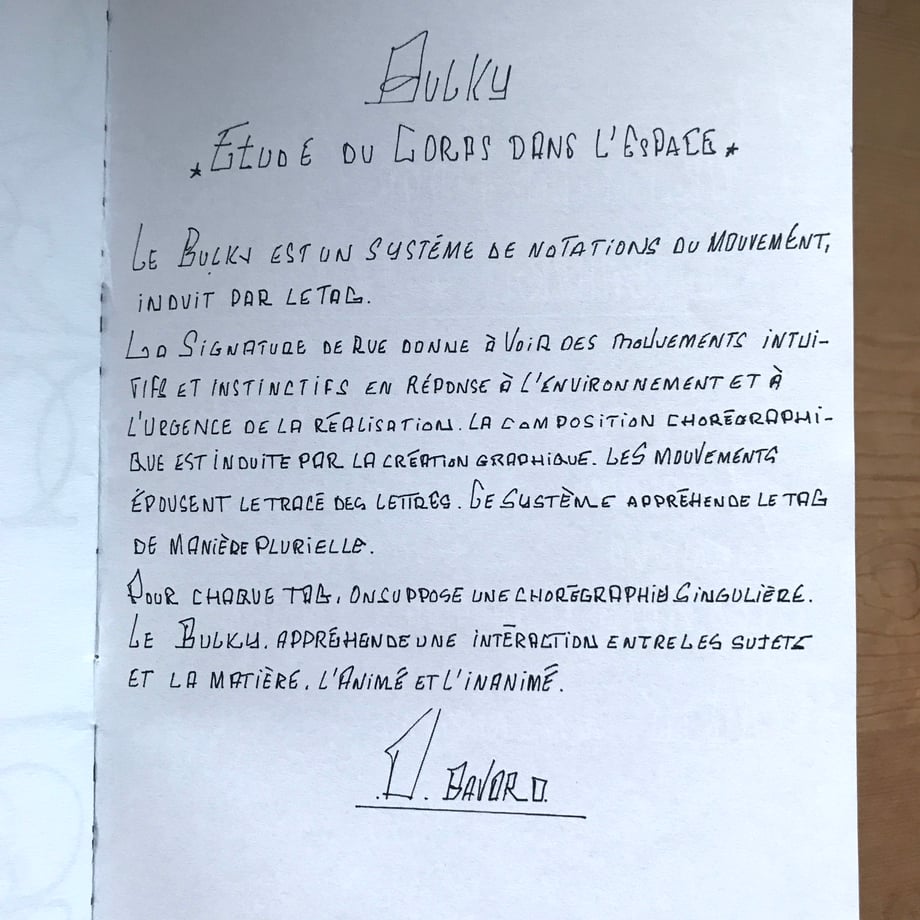 Bulky
* Etude du Corps dans l'Espace *
Le Bulky est un système de notations du mouvement,
induit par le tag.
La Signature de rue donne à voir des mouvements intui-
tifs et instinctifs en réponse à l'environnement et à
l'urgence de la réalisation. La composition chorégraphi-
que est induite par la création graphique. Les mouvements
épousent le tracé des lettres. Ce système appréhende le tag
de manière plurielle.
Pour chaque tag, on suppose une chorégraphie singulière.
Le Bulky. appréhende une intéraction entre les sujets
et la matière, l'animé et l'inanimé.
Bavard.